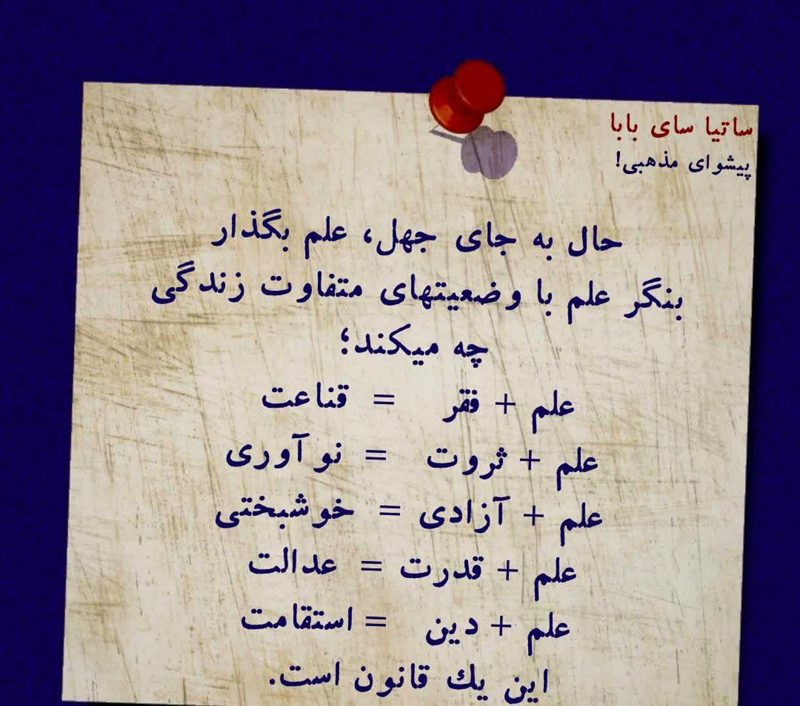 ساتیا سای بابا
پیشوای مذهبی!
حال به جای جهل، علم بگذار
بنگر علم با وضعیتهای متفاوت زندگی
چه میکند؛
علم + فقر = قناعت
علم + ثروت = نوآوری
علم + آزادی = خوشبختی
علم + قدرت = عدالت
علم + دین = استقامت
این یك قانون است.